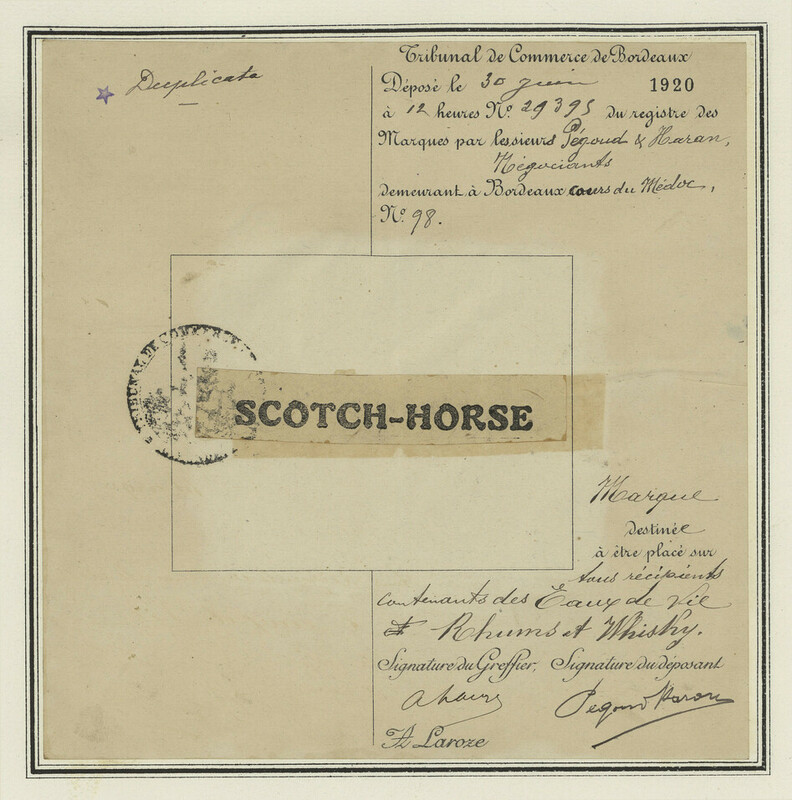 Duplicata
Tribunal de Commerce de Bordeaux
Déposé le 30 juin 1920
à 12 heures No. 29395 du registre des
Marques par les sieurs Pégoud & Haran,
Négociants
demeurant à Bordeaux cours du Médoc,
No. 98.
TRIBUNAL DE COMMERCE DE
SCOTCH-HORSE
Marque
destinée
à être placé sur
tous récipients
contenants des Eaux de Vie
Rhums et Whisky.
Signature du Greffier, Signature du déposant
Pegoud Haran
Laroze